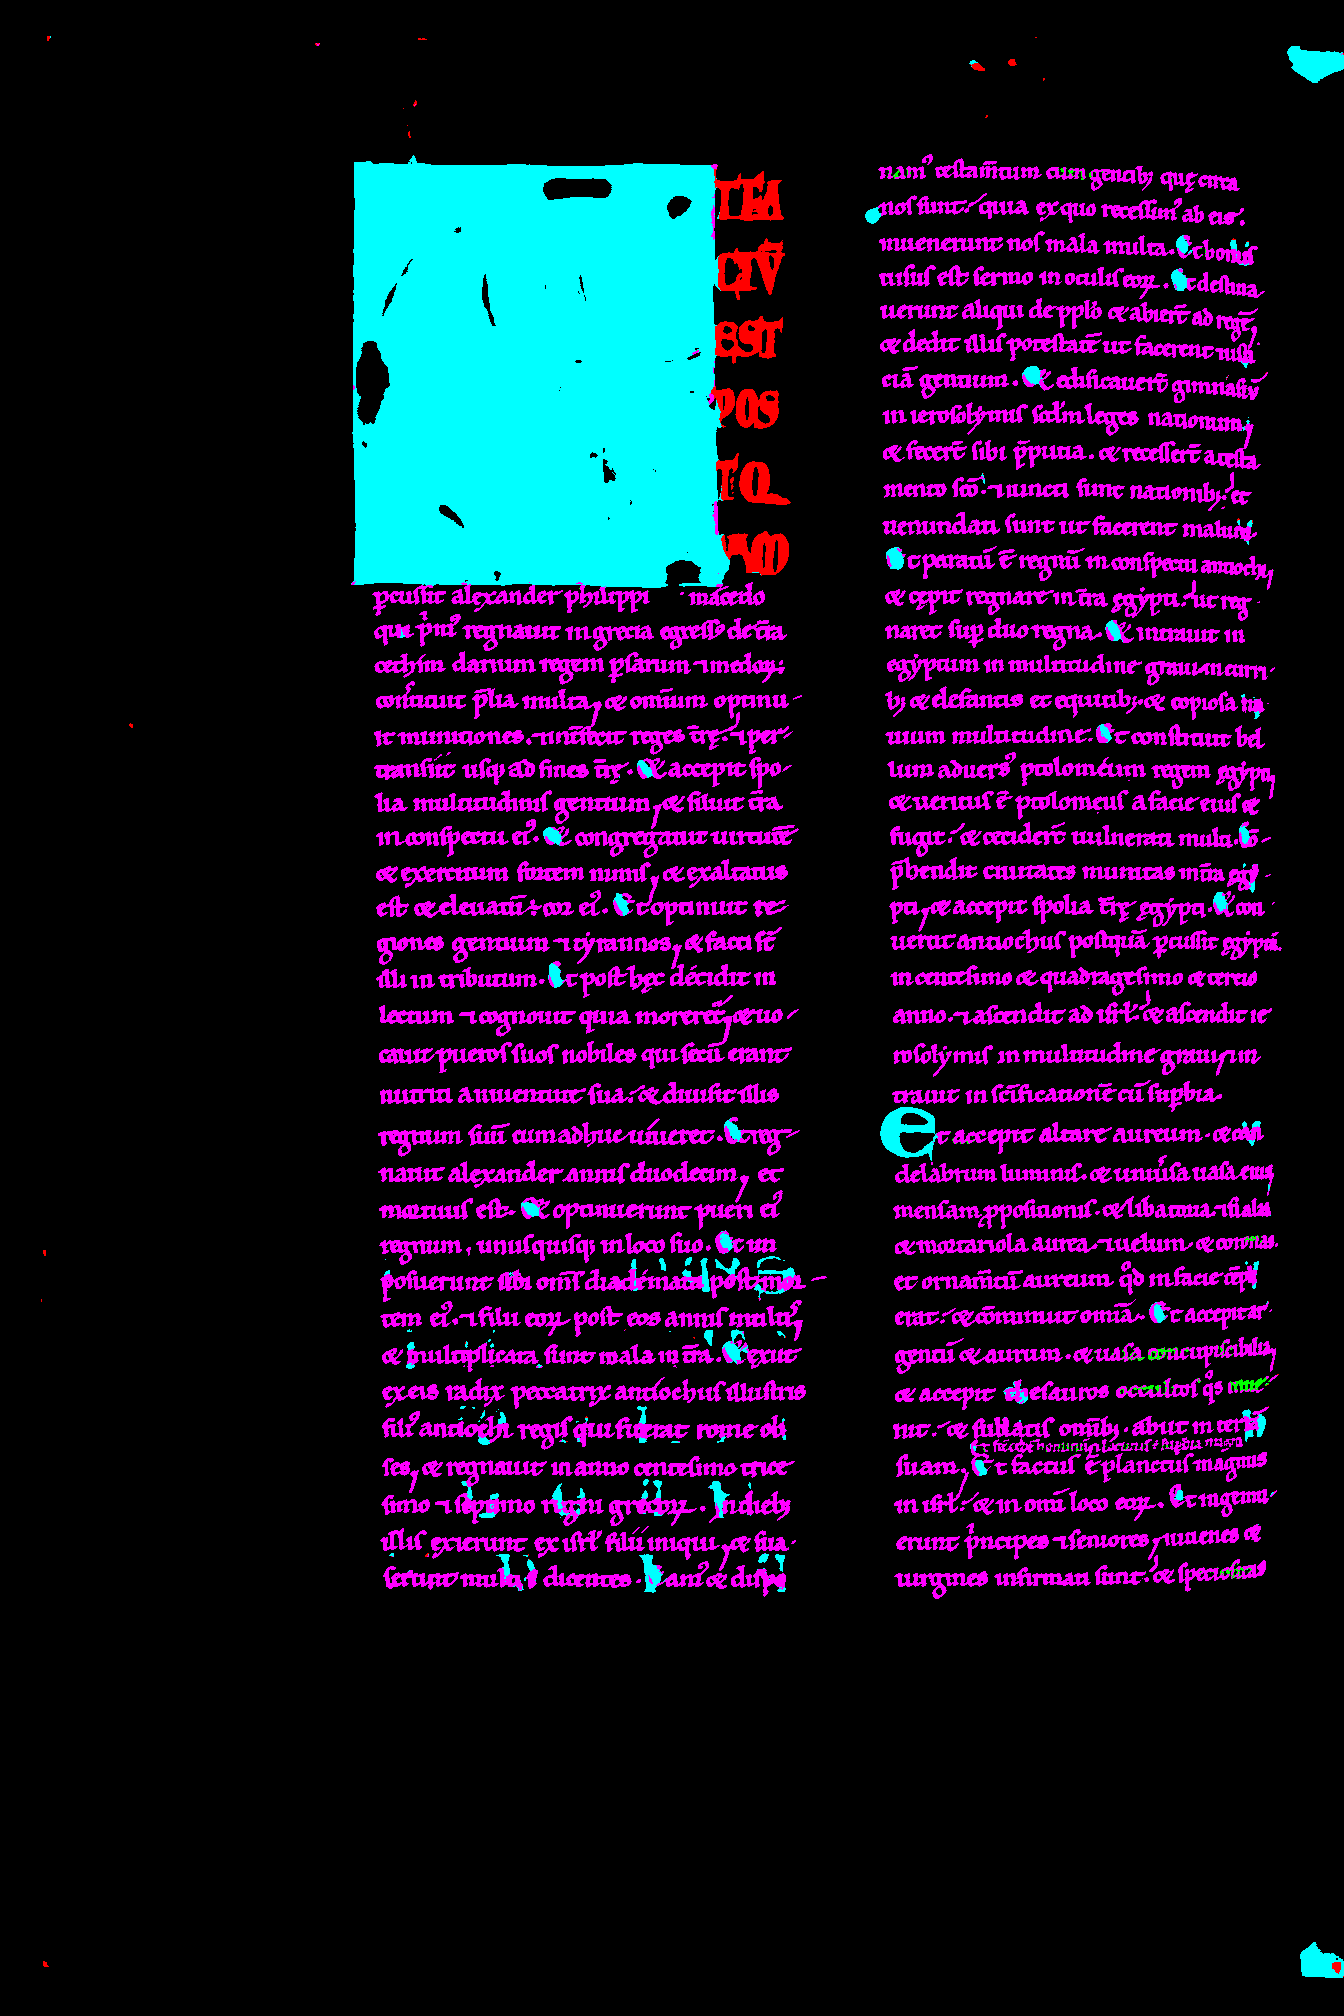 T FA
CTV̄
EST
POS
TQ
VAM
ꝑcussit alexander philippi macedo
qui p̄m᷒ regnauit in grecia egress᷒ de t̄ra
cethim darium regem ꝑsarum ⁊ medoꝝ;
constituit p̄lia multa, & omīum optinu-
it munitiones. ⁊ int̄fecit reges t̄rę. ⁊ per-
transiit usq; ad fines t̄rę. Et accepit spo-
lia multitudinis gentium, & siluit t̄ra
in conspectu ei᷒. Et congregauit uirtutē
& exercitum fortem nimis, & exaltatus
est & eleuatū ÷ cor ei᷒. Et optinuit re-
giones gentium ⁊ tyrannos, & facti st̄
illi in tributum. Et post hęc décidit in
lectum ⁊ cognouit quia morereť, & uo-
cauit pueros suos nobiles qui secū erant
nutriti a iuuentute sua. & diuisit illis
regnum suū cum adhuc uiueret. Et reg-
nauit alexander annis duodecim, et
mortuus est. Et optinuerunt pueri ei᷒
regnum, unusquisq; in loco suo. Et im
posuerunt sibi om̄s diademata post mor-
tem ei᷒. ⁊ filii eoꝝ post eos annis multis,
& multiplicata sunt mala in t̄ra. Et exiit
ex eis radix peccatrix antiochus illustris
fili᷒ antiochi regis qui fuerat rome ob
ses, & regnauit in anno centesimo trice
simo ⁊ septimo regni grecoꝝ. In dieb;
illis exierunt ex isrl̄ filii iniqui, & sua
serunt multis dicentes. Eam᷒ & dispo
nam᷒ testam̄tum cum gentib; quę circa
nos sunt. quia ex quo recessim᷒ ab eis.
inuenerunt nos mala multa. Et bonus
uisus est sermo in oculis eoꝝ. Et destina
uerunt aliqui de pplo & abierr̄t ad regē,
& dedit illis potestatē ut facerent iusti
ciā gentium. Et edificauerr̄t gimnasiū
in ierosolymis scd̄m leges nationum,
& fecerr̄t sibi p̄putia. & recesserr̄t a testa
mento sc̄o. ⁊ iuncti sunt nationib;. et
uenundati sunt ut facerent malum.
Et paratū ē regnū in conspectu antiochi,
& cępit regnare in t̄ra ęgypti. ut reg
naret suꝑ duo regna. Et intrauit in
egyptum in multitudine graui. in curri-
b; & elefantis et equitib;. & copiosa na
uium multitudine. Et constituit bel
lum aduers᷒ ptolomeum regem egypti,
& ueritus ē ptolomeus a facie eius &
fugit. & ceciderr̄t uulnerati multi. Et cō-
p̄hendit ciuitates munitas in t̄ra egy
pti, & accepit spolia t̄rę ęgypti. Et con
uertit antiochus postquā ꝑcussit egyptū.
in centesimo & quadragesimo & tercio
anno. ⁊ ascendit ad isrl̄. & ascendit ie
rosolymis in multitudine graui, ⁊ in
trauit in sc̄ificationē cū suꝑbia.
Et accepit altare aureum. & can
delabrum luminis. & uniu᷒sa uasa eius,
mensam ꝓpositionis. & libatoria ⁊ fialas
& mortariola aurea. ⁊ uelum. & coronas.
et ornam̄tū aureum qd̄ in facie tēpli
erat. & cōminuit omīa. Et accepit ar-
gentū & aurum. & uasa concupiscibilia,
& accepit thesauros occultos q̊s inue-
nit. & sublatis omīb;. abiit in terrā
Et fecit cedem hominum & locutus ē in suꝑbia magna
suam, Et factus ē planctus magnus
in isrl̄. & in omī loco eoꝝ. Et ingemu-
erunt p̄ncipes ⁊ seniores, iuuenes &
uirgines infirmati sunt. & speciositas